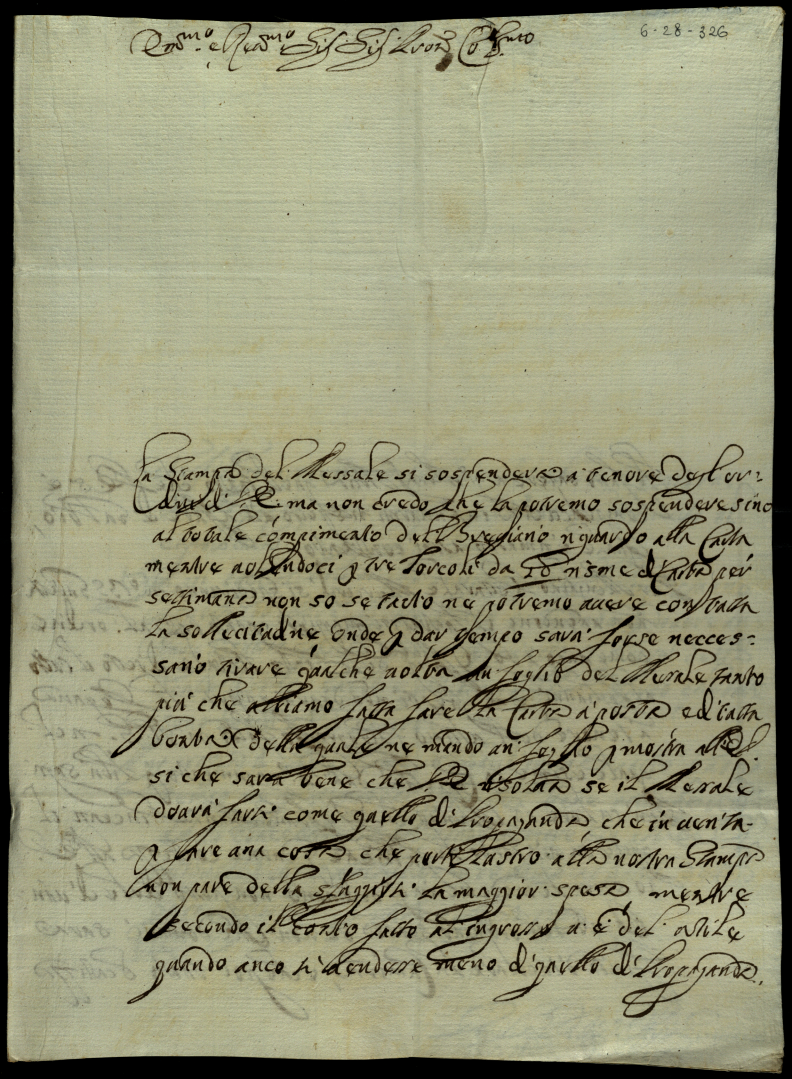 6-28-326
Rev.mo Sig.
La Stampa del Messale si sospenderà a tenore degl'or=
dini di ma non credo che la potremo sospendere sino
al totale compimento del Breviario riguardo alla Carta
mentre volendoci p tre Torcoli da risme di Carta per
settimana non so se tacto ne potremo avere con tutta
la sollecitudine onde p dar tempo sarà forse necces=
sario tirare qualche volta un foglio del Messale tanto
più che abbiamo fatta fare la Carta a posta ed tutta
bontà della quale ne mando un foglio p mostra
si che sarà bene che risolva se il Messale
dovrà farsi come quello di Propaganda che in verità
p fare una cosa che porti lustro alla nostra Stampa
non pare della sfuggirsi la maggior spesa mentre
secondo il Conto fatto al ingrosso vi è del utile
quando anco si vendesse meno di quello di Propaganda.